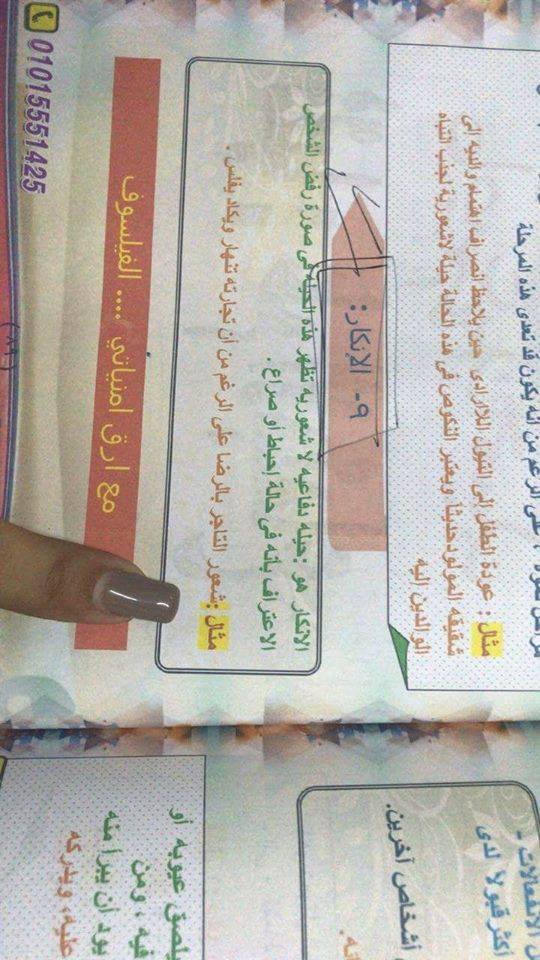 مراحل نموه ، على الرغم من انه يكون قد تعدى هذه المرحلة
مثال : عودة الطفل إلى التبول اللاإرادى حين يلاحظ انصراف اهتمام والديه إلى
شقيقه المولود حديثا ويعتبر النكوص فى هذه الحالة حيلة لاشعورية لجذب انتباه
الوالدين اليه
٩- الإنكار:
الانكار هو :حيله دفاعيه لا شعوريه تظهر هذه الحيله فى صورة رفض الشخص
الاعتراف بأنه فى حالة إحباط أو صراع .
مثال :شعور التاجر بالرضا على الرغم من أن تجارته تنهار ويكاد يفلس .
مع ارق امنياتي .... الفيلسوف
01015551425
(٨٩)
الانفعالات -
أكثر قبولا لدى
أشخاص آخرين.
يلصق عيوبه أو
فيه ، ومن
يود أن يبرأ منه
عليه، ويدركه